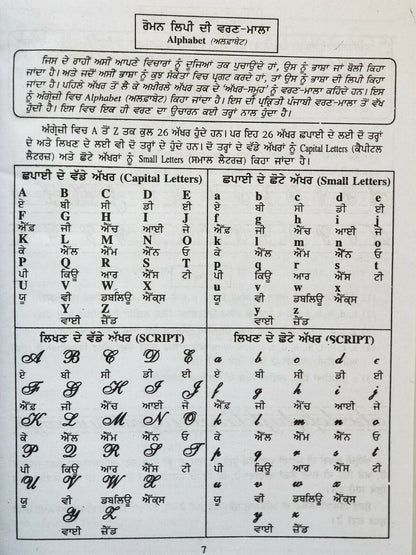 ਰੋਮਨ ਲਿਪੀ ਦੀ ਵਰਣ-ਮਾਲਾ
Alphabet (ਅਲਫ਼ਾਬੇਟ)
ਜਿਸ ਦੇ ਰਾਹੀਂ ਅਸੀਂ ਆਪਣੇ ਵਿਚਾਰਾਂ ਨੂੰ ਦੂਜਿਆਂ ਤਕ ਪੁਚਾਉਂਦੇ ਹਾਂ, ਉਸ ਨੂੰ ਭਾਸ਼ਾ ਜਾਂ ਬੋਲੀ ਕਿਹਾ
ਜਾਂਦਾ ਹੈ। ਅਤੇ ਜਦੋਂ ਅਸੀਂ ਭਾਸ਼ਾ ਨੂੰ ਕੁਝ ਸੰਕੇਤਾਂ ਵਿਚ ਪ੍ਰਗਟ ਕਰਦੇ ਹਾਂ, ਤਾਂ ਉਸ ਨੂੰ ਭਾਸ਼ਾ ਦੀ ਲਿਪੀ ਕਿਹਾ
ਜਾਂਦਾ ਹੈ। ਪਹਿਲੇ ਅੱਖਰ ਤੋਂ ਲੈ ਕੇ ਅਖ਼ੀਰਲੇ ਅੱਖਰ ਤਕ ਦੇ 'ਅੱਖਰ-ਸਮੂਹ' ਨੂੰ ਵਰਣ-ਮਾਲਾ ਕਹਿੰਦੇ ਹਨ। ਇਸ
ਨੂੰ ਅੰਗ੍ਰੇਜ਼ੀ ਵਿਚ Alphabet (ਅਲਫ਼ਾਬੇਟ) ਕਿਹਾ ਜਾਂਦਾ ਹੈ। ਇਸ ਦੀ ਪ੍ਰਕ੍ਰਿਤੀ ਪੰਜਾਬੀ ਵਰਣ-ਮਾਲਾ ਤੋਂ ਵੱਖ
ਹੁੰਦੀ ਹੈ। ਇਸ ਵਿਚ ਇਕ ਵਰਣ ਦਾ ਉਚਾਰਨ ਕਈ ਤਰ੍ਹਾਂ ਨਾਲ ਹੁੰਦਾ ਹੈ।
ਅੰਗ੍ਰੇਜ਼ੀ ਵਿਚ A ਤੋਂ Z ਤਕ ਕੁਲ 26 ਅੱਖਰ ਹੁੰਦੇ ਹਨ। ਪਰ ਇਹ 26 ਅੱਖਰ ਛਪਾਈ ਦੇ ਲਈ ਦੋ ਤਰ੍ਹਾਂ
ਦੇ ਅਤੇ ਲਿਖਣ ਦੇ ਲਈ ਵੀ ਦੋ ਤਰ੍ਹਾਂ ਦੇ ਹੁੰਦੇ ਹਨ। ਦੋ ਤਰ੍ਹਾਂ ਦੇ ਵੱਡੇ ਅੱਖਰਾਂ ਨੂੰ Capital Letters (ਕੈਪੀਟਲ
ਲੈਟਰਜ਼) ਅਤੇ ਛੋਟੇ ਅੱਖਰਾਂ ਨੂੰ Small Letters (ਸਮਾਲ ਲੈਟਰਜ਼) ਕਿਹਾ ਜਾਂਦਾ ਹੈ।
ਛਪਾਈ ਦੇ ਵੱਡੇ ਅੱਖਰ (Capital Letters)
A B C D E
ਏ ਬੀ ਸੀ ਡੀ ਈ
F G H I J
ਐੱਫ਼ ਜੀ ਐੱਚ ਆਈ ਜੇ
K L M N O
ਕੇ ਐੱਲ ਐੱਮ ਐੱਨ ਓ
P Q R S T
ਪੀ ਕਿਊ ਆਰ ਐੱਸ ਟੀ
U V W X
ਯੂ ਵੀ ਡਬਲਿਊ ਐਕ੍ਸ
Y Z
ਵਾਈ ਜ਼ੈੱਡ
ਛਪਾਈ ਦੇ ਛੋਟੇ ਅੱਖਰ (Small Letters)
a b c d e
ਏ ਬੀ ਸੀ ਡੀ ਈ
f g h i j
ਐੱਫ਼ ਜੀ ਐੱਚ ਆਈ ਜੇ
k l m n o
ਕੇ ਐੱਲ ਐੱਮ ਐੱਨ ਓ
p q r s t
ਪੀ ਕਿਊ ਆਰ ਐੱਸ ਟੀ
u v w x
ਯੂ ਵੀ ਡਬਲਿਊ ਐਕ੍ਸ
y z
ਵਾਈ ਜ਼ੈੱਡ
ਲਿਖਣ ਦੇ ਵੱਡੇ ਅੱਖਰ (SCRIPT)
A B C D E
ਏ ਬੀ ਸੀ ਡੀ ਈ
F G H I J
ਐੱਫ਼ ਜੀ ਐੱਚ ਆਈ ਜੇ
K L M N O
ਕੇ ਐੱਲ ਐੱਮ ਐੱਨ ਓ
P Q R S T
ਪੀ ਕਿਊ ਆਰ ਐੱਸ ਟੀ
U V W X
ਯੂ ਵੀ ਡਬਲਿਊ ਐਕ੍ਸ
Y Z
ਵਾਈ ਜ਼ੈੱਡ
ਲਿਖਣ ਦੇ ਛੋਟੇ ਅੱਖਰ (SCRIPT)
a b c d e
ਏ ਬੀ ਸੀ ਡੀ ਈ
f g h i j
ਐੱਫ਼ ਜੀ ਐੱਚ ਆਈ ਜੇ
k l m n o
ਕੇ ਐੱਲ ਐੱਮ ਐੱਨ ਓ
p q r s t
ਪੀ ਕਿਊ ਆਰ ਐੱਸ ਟੀ
u v w x
ਯੂ ਵੀ ਡਬਲਿਊ ਐਕ੍ਸ
y z
ਵਾਈ ਜ਼ੈੱਡ
7